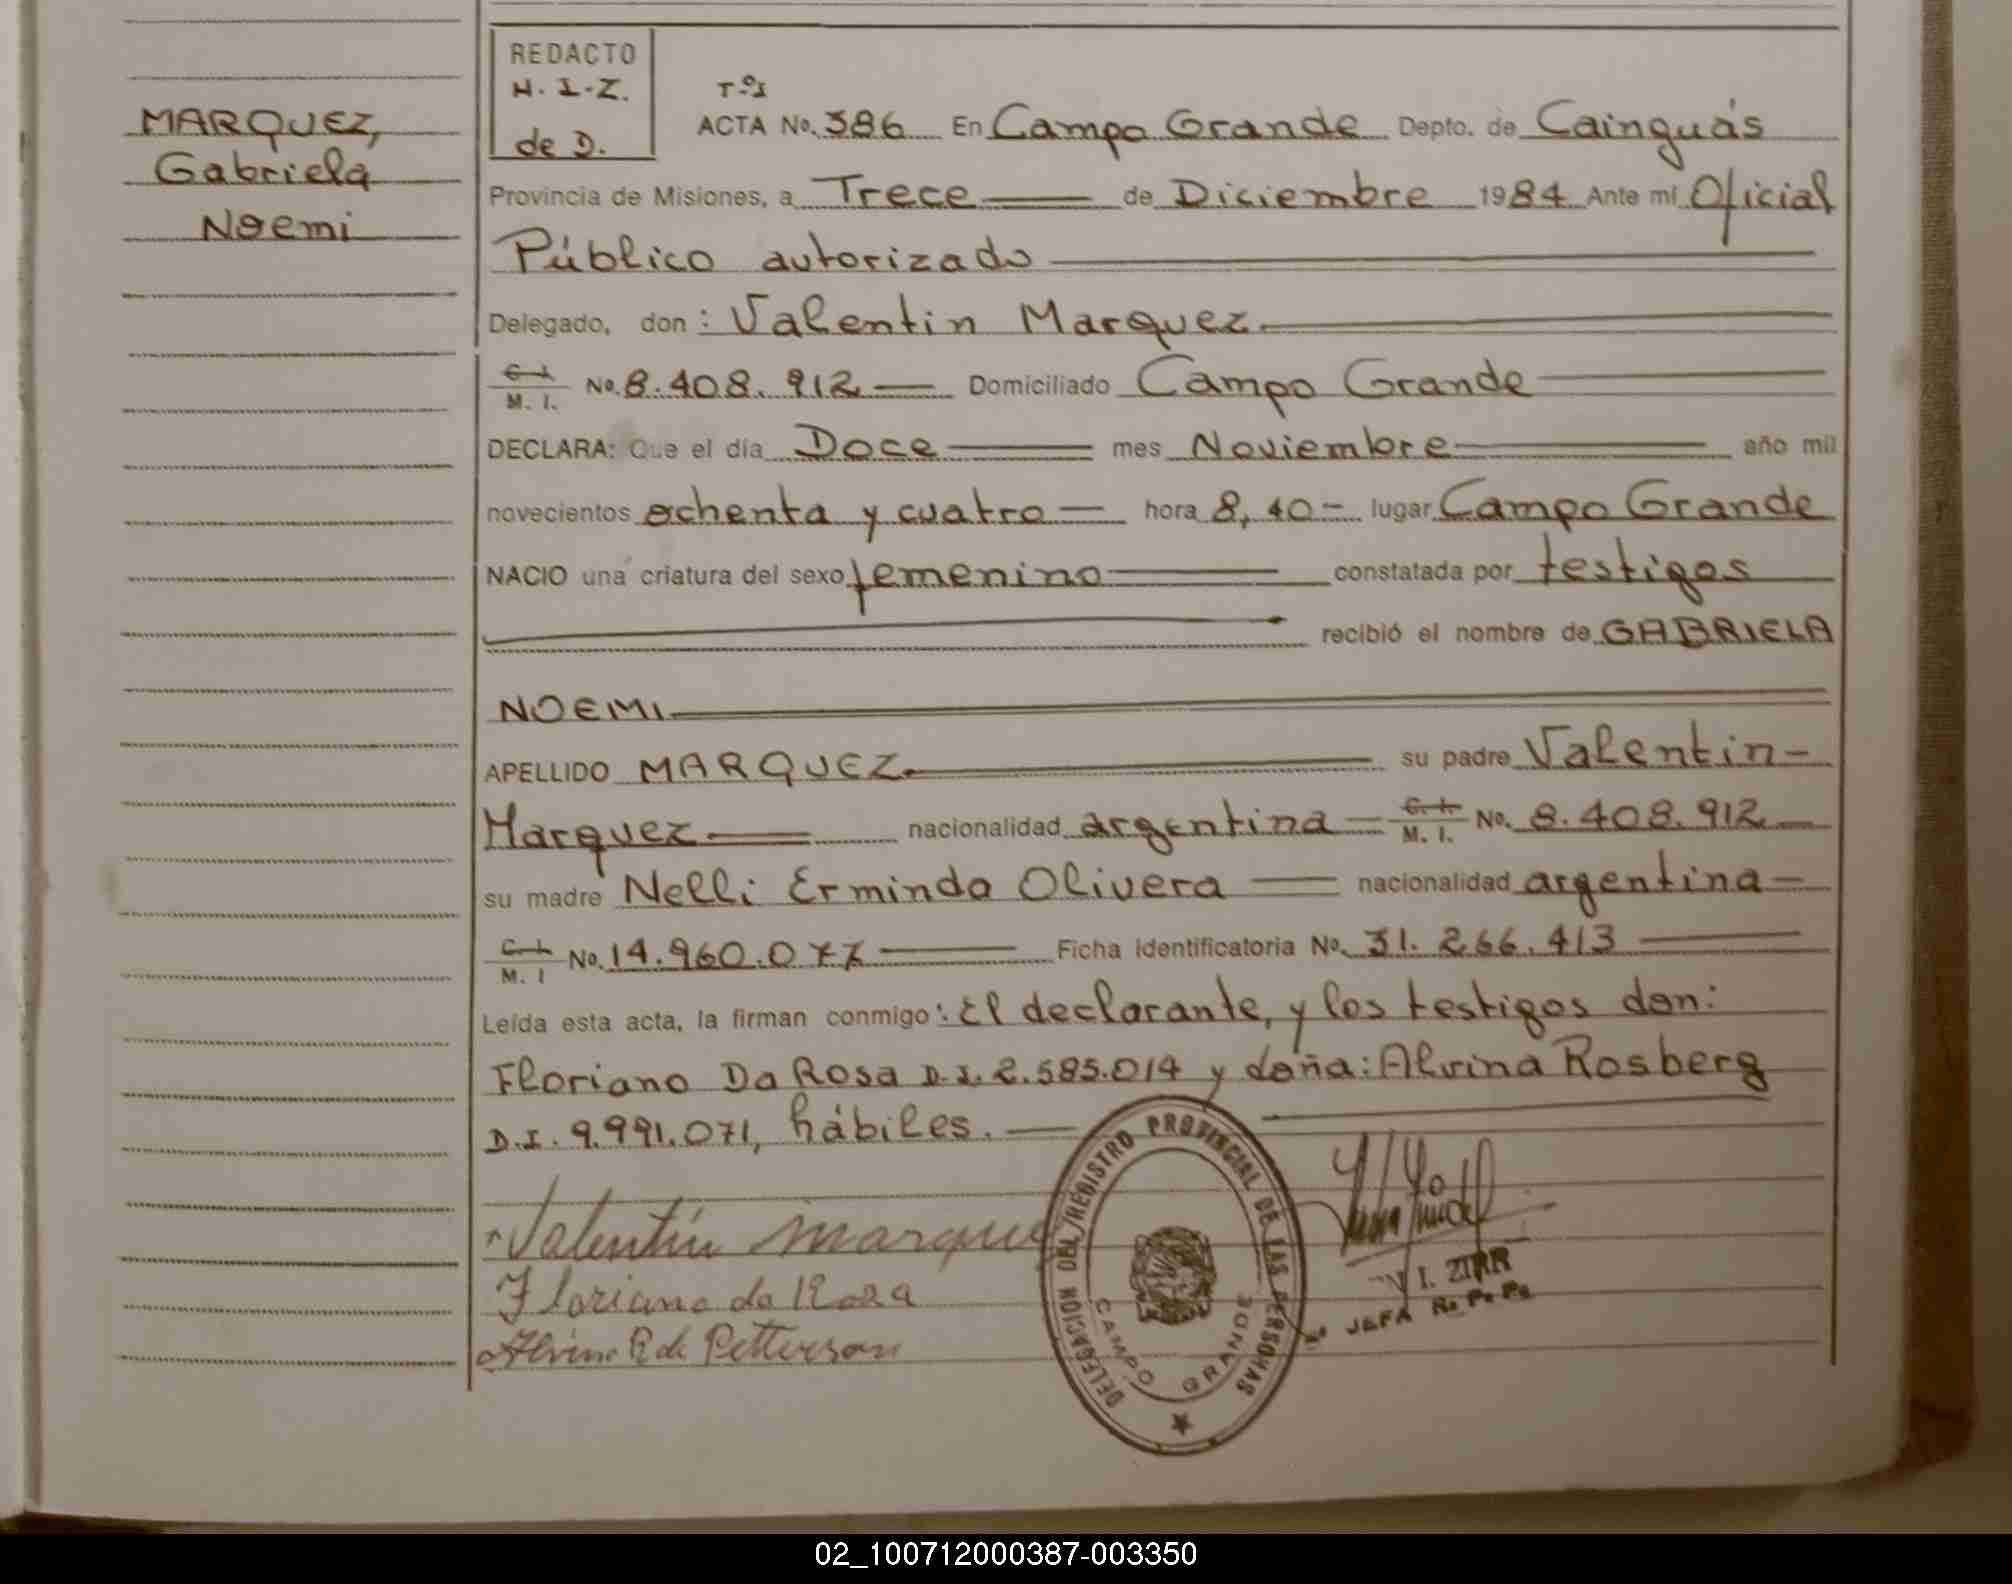 MARQUEZ,
Gabriela
Noemi
REDACTO
N. I. Z.
de D.
Tº I
ACTA No. 386 En Campo Grande Depto. de Cainguás
Provincia de Misiones, a Trece de Diciembre 1984 Ante mí Oficial
Público autorizado
Delegado, don: Valentin Marquez.
C. I. M. I. No. 8.408.912 Domiciliado Campo Grande
DECLARA: Que el día Doce mes Noviembre año mil
novecientos ochenta y cuatro hora 8,40 lugar Campo Grande
NACIO una criatura del sexo femenino constatada por testigos
recibió el nombre de GABRIELA
NOEMI
APELLIDO MARQUEZ su padre Valentin
Marquez nacionalidad argentina C. I. M. I. No. 8.408.912
su madre Nelli Erminda Olivera nacionalidad argentina
C. I. M. I No. 14.960.077 Ficha identificatoria No. 31.266.413
Leída esta acta, la firman conmigo: El declarante, y los testigos don:
Floriano Da Rosa D.I. 2.585.014 y doña: Alvina Rosberg
D.I. 9.991.071, hábiles.
Valentín Marquez
Floriano da Roza
Alvina R de Petterson
DELEGACION DEL REGISTRO PROVINCIAL DE LAS PERSONAS
CAMPO GRANDE
I. ZIRR
JEFA R. P. P.
02_100712000387-003350